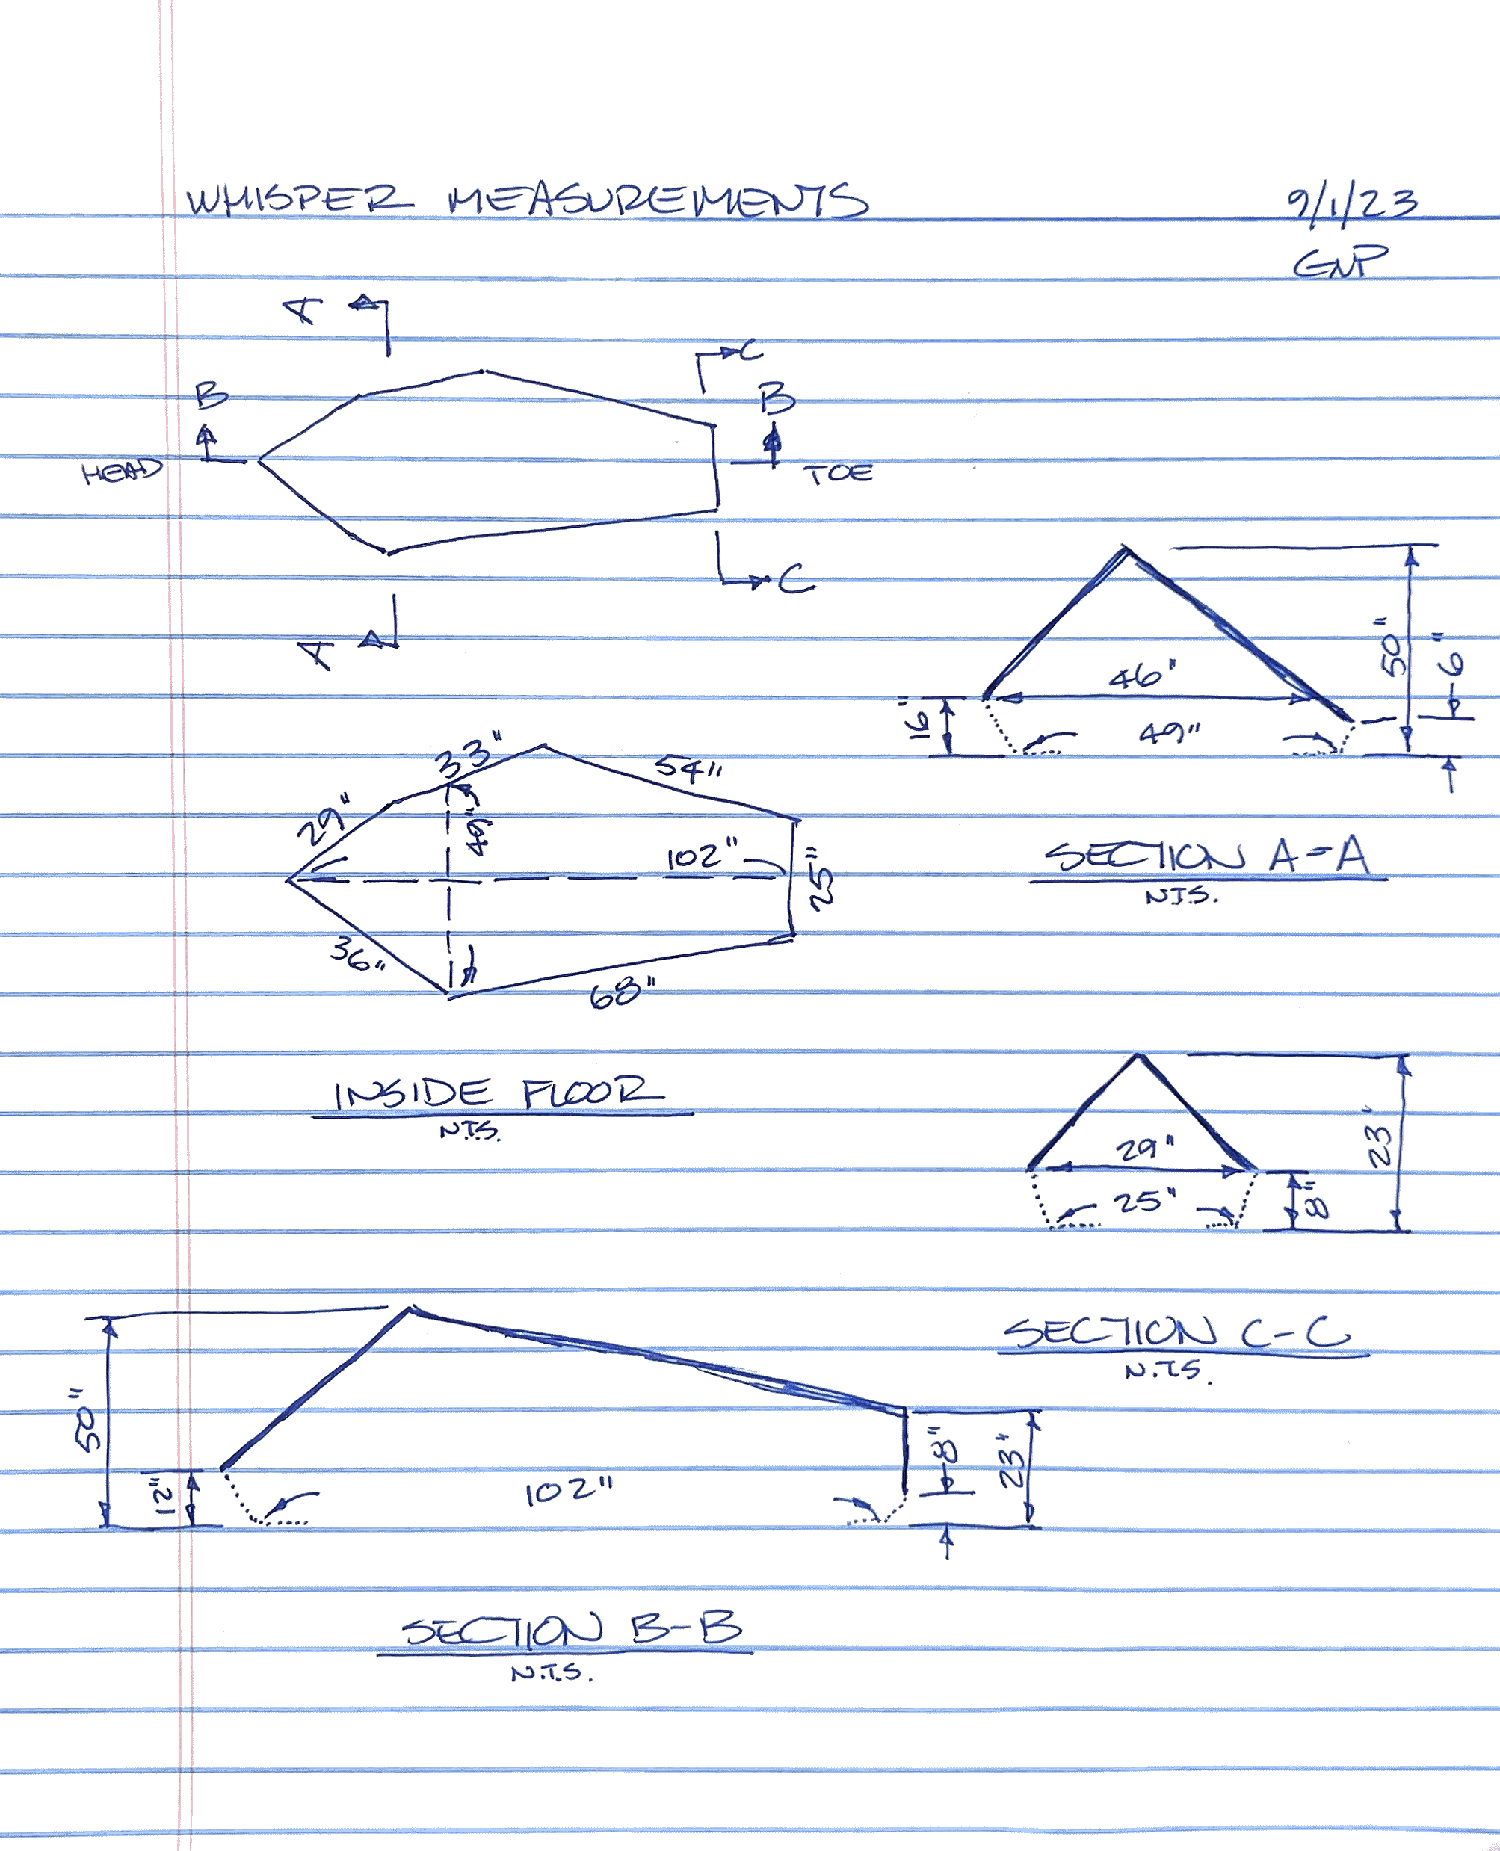 WHISPER MEASUREMENTS 9/1/23
GNP
A
C
B B
HEAD TOE
C
A
50"
6"
46"
16"
49"
33"
54"
29"
49"
102"
25"
SECTION A-A
N.T.S.
36"
68"
INSIDE FLOOR
N.T.S.
23"
29"
25"
8"
SECTION C-C
N.T.S.
50"
12"
102"
8"
23"
SECTION B-B
N.T.S.